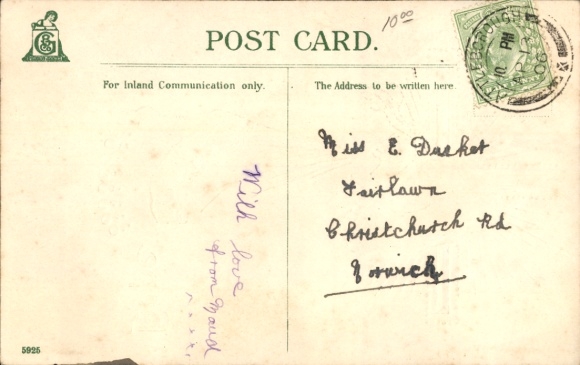 10 00
POST CARD.
For Inland Communication only.
The Address to be written here.
ATTLEBOROUGH
10 PM
AP 13
06
Miss E. Dasket
Fairlawn
Christchurch Rd
Norwich
With love
from Maud
x x x x
5925